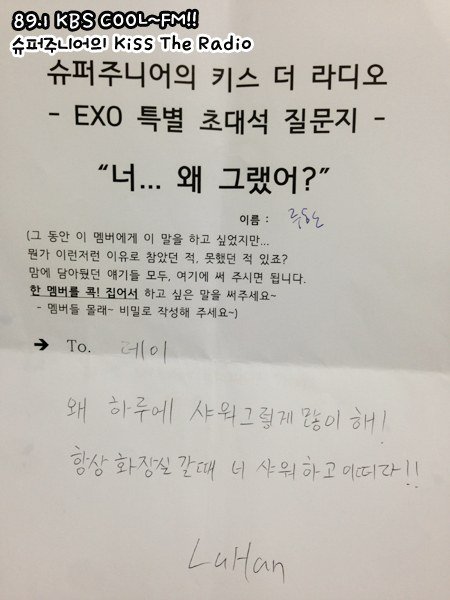 89.1 KBS COOL~FM!!
슈퍼주니어의 Kiss The Radio
슈퍼주니어의 키스 더 라디오
- EXO 특별 초대석 질문지 -
“너... 왜 그랬어?”
이름 : 루한
(그 동안 이 멤버에게 이 말을 하고 싶었지만...
뭔가 이런저런 이유로 참았던 적, 못했던 적 있죠?
맘에 담아뒀던 얘기들 모두, 여기에 써 주시면 됩니다.
한 멤버를 콕! 집어서 하고 싶은 말을 써주세요~
- 멤버들 몰래~ 비밀로 작성해 주세요~)
➔ To. 레이
왜 하루에 샤워그렇게 많이 해!
항상 화장실 갈때 너 샤워하고 이떠라!!
LuHan